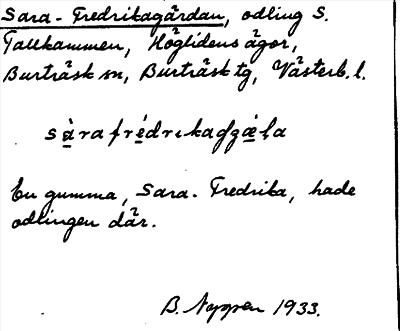 Sara-Fredrikagärdan, odling S.
Tallkammen, Höglidens ägor,
Burträsk sn, Burträsk tg, Västerb. l.
En gumma, Sara-Fredrika, hade
odlingen där.
B. Nyppen 1933.